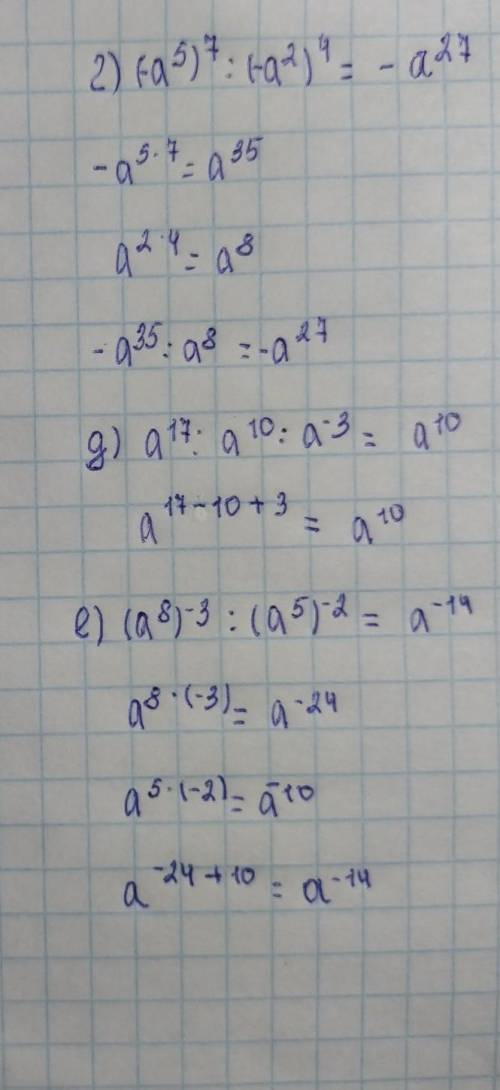 г) (-a⁵)⁷ : (-a²)⁴ = - a²⁷
-a⁵·⁷ = a³⁵
a²·⁴ = a⁸
-a³⁵ : a⁸ = -a²⁷
д) a¹⁷ : a¹⁰ : a⁻³ = a¹⁰
a¹⁷⁻¹⁰⁺³ = a¹⁰
е) (a⁸)⁻³ : (a⁵)⁻² = a⁻¹⁴
a⁸·⁽⁻³⁾ = a⁻²⁴
a⁵·⁽⁻²⁾ = a⁻¹⁰
a⁻²⁴⁺¹⁰ = a⁻¹⁴